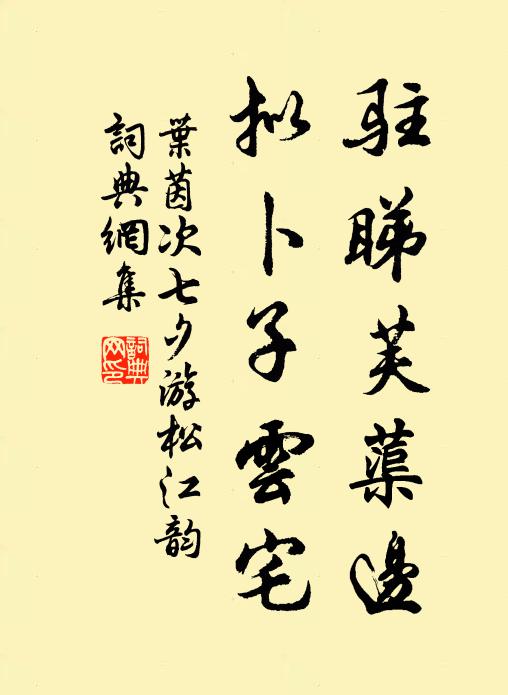 駐睇芙蕖邊
拟卜子雲宅
葉茵次七夕游松江韵
詞典網集
詞典网印